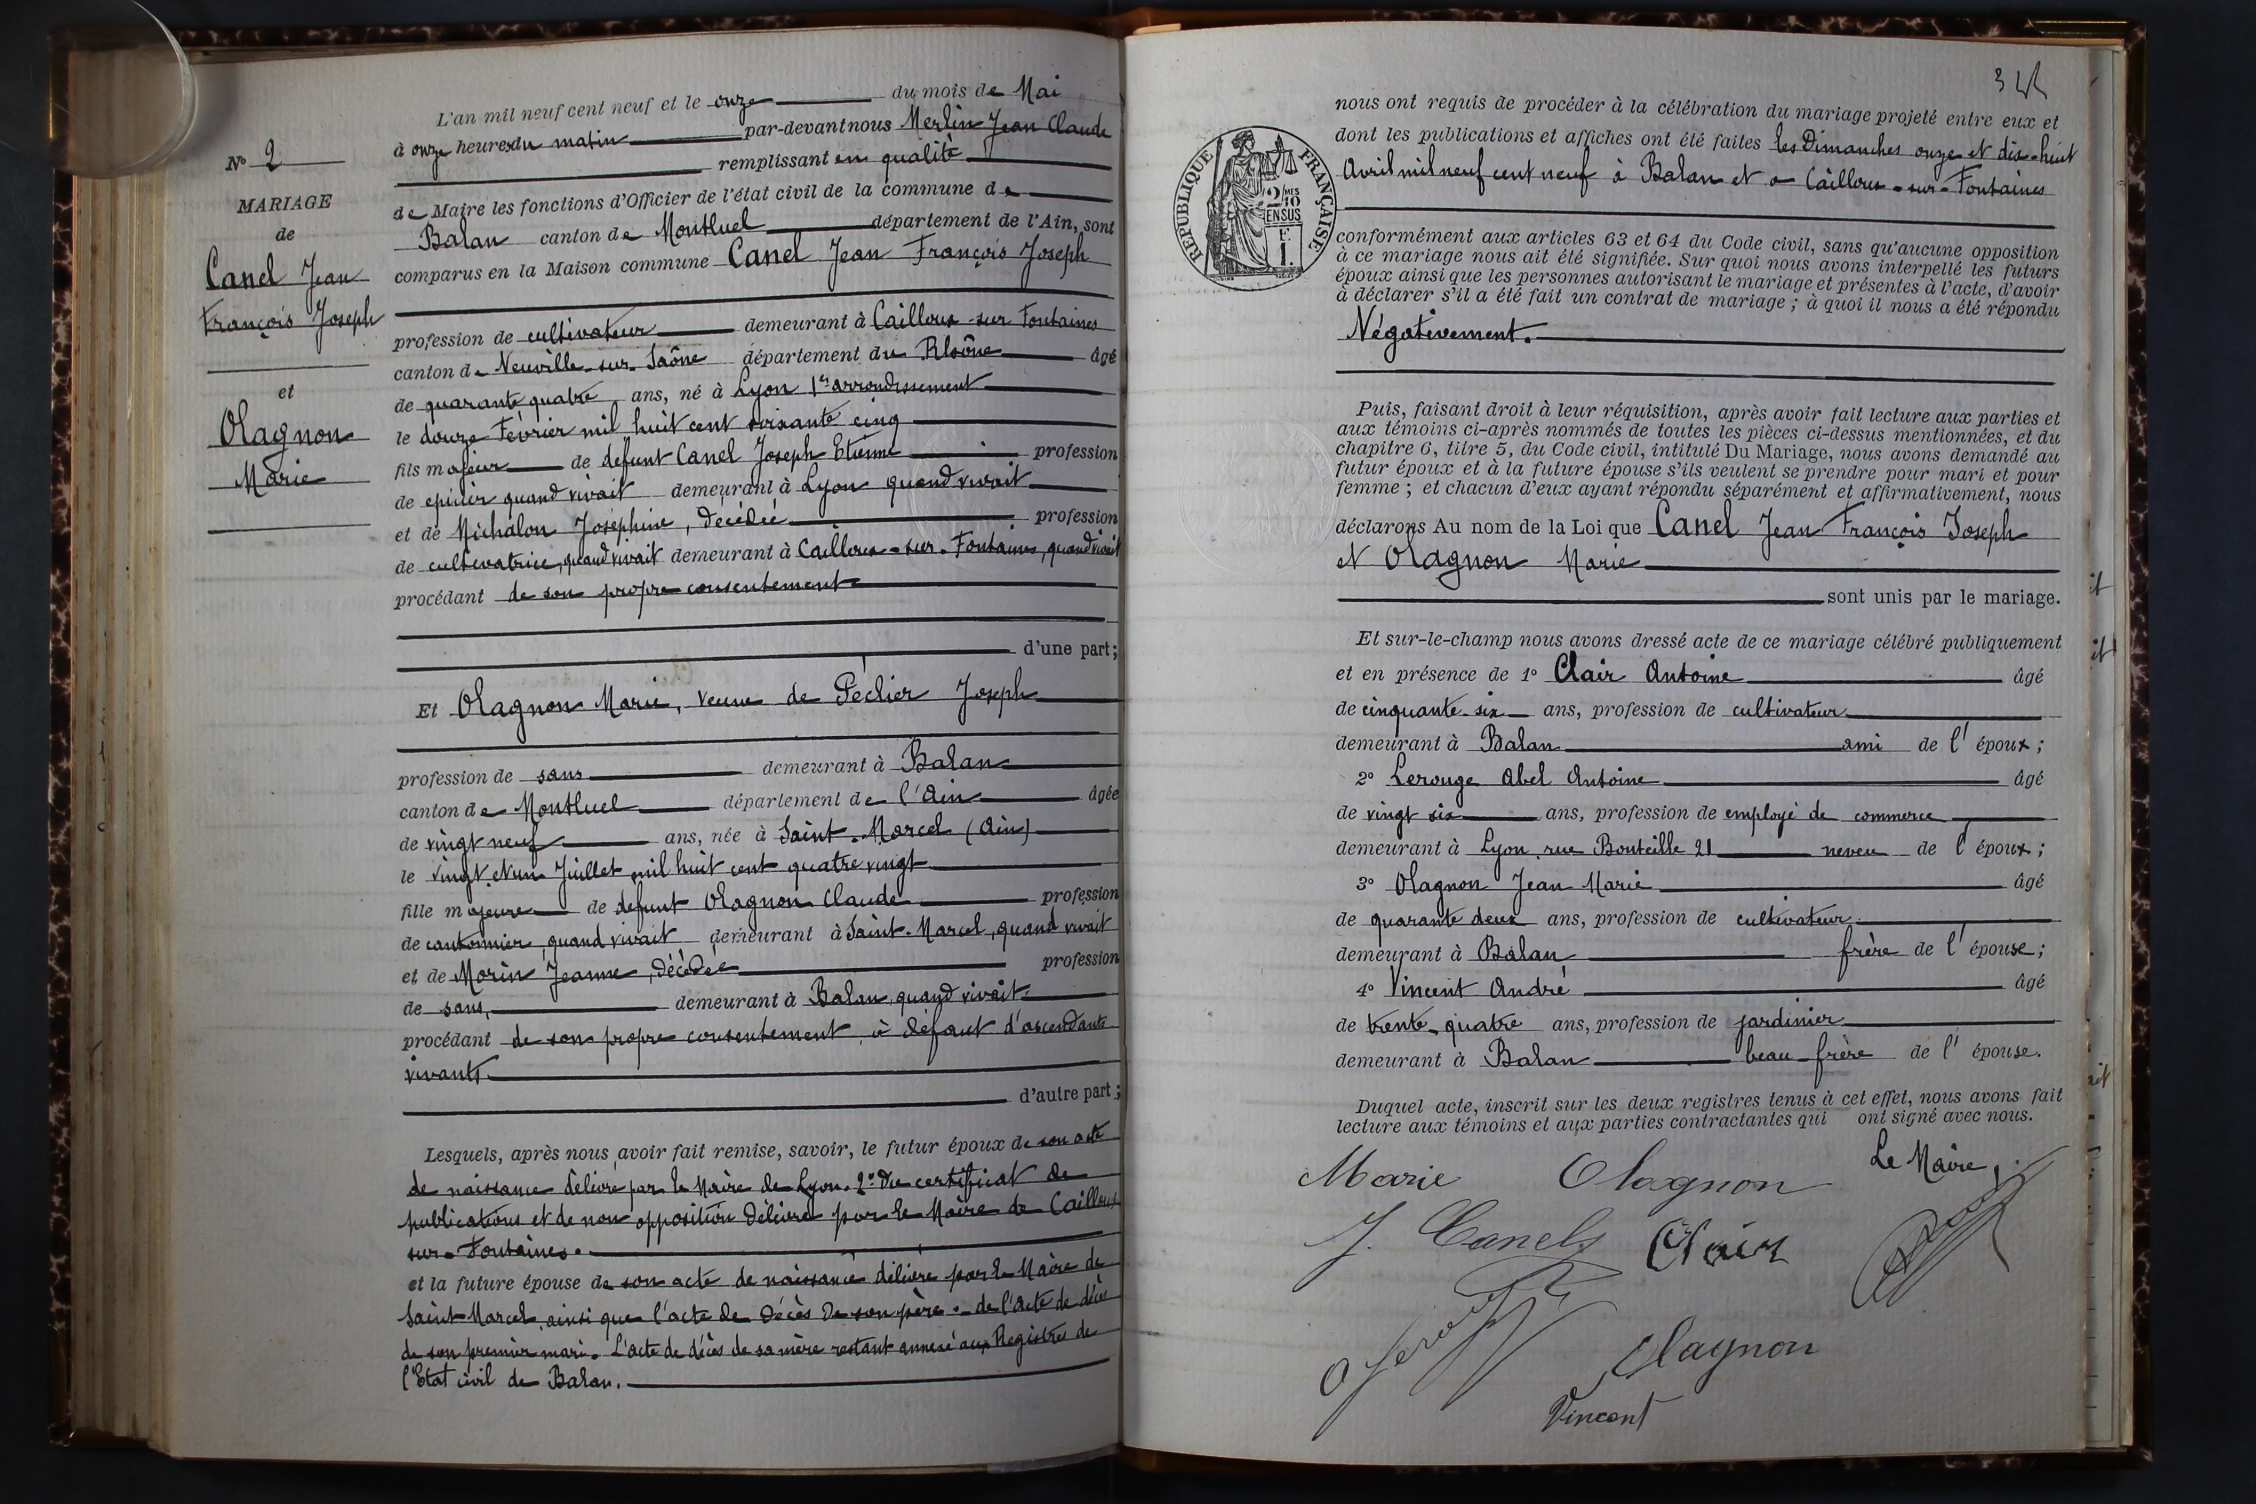 N° 2
MARIAGE
de
Canel Jean
François Joseph
et
Olagnon
Marie
L'an mil neuf cent neuf et le onze du mois de Mai
à onze heures du matin par-devant nous Merlin Jean Claude
remplissant en qualité
de Maire les fonctions d'Officier de l'état civil de la commune de
Balan canton de Montluel département de l'Ain, sont
comparus en la Maison commune Canel Jean François Joseph
profession de cultivateur demeurant à Cailloux-sur Fontaines
canton de Neuville-sur-Saône département du Rhône âgé
de quarante quatre ans, né à Lyon 1er arrondissement
le douze Février mil huit cent soixante cinq
fils majeur de défunt Canel Joseph Etienne profession
de epicier quand vivait demeurant à Lyon quand vivait
et de Michalon Joséphine, décédée profession
de cultivatrice, quand vivait demeurant à Cailloux-sur-Fontaines, quand vivait
procédant de son propre consentement
d'une part;
Et Olagnon Marie, veuve de Péclier Joseph
profession de sans demeurant à Balan
canton de Montluel département de l'Ain âgée
de vingt neuf ans, née à Saint-Marcel (Ain)
le vingt et un Juillet mil huit cent quatre vingt
fille majeure de defunt Olagnon Claude profession
de cantonnier, quand vivait demeurant à Saint-Marcel, quand vivait
et de Morin Jeanne, décédée profession
de sans, demeurant à Balan, quand vivait.
procédant de son propre consentement, à défaut d'ascendants
vivants.
d'autre part;
Lesquels, après nous avoir fait remise, savoir, le futur époux de son acte
de naissance délivré par le Maire de Lyon. 2° du certificat de
publications et de non opposition délivré par le Maire de Cailloux
sur-Fontaines.
et la future épouse de son acte de naissance délivré par le Maire de
Saint-Marcel, ainsi que l'acte de décès de son père. - de l'acte de décès
de son premier mari. L'acte de décès de sa mère restant annexé aux Registres de
l'Etat civil de Balan.
RÉPUBLIQUE FRANÇAISE
2 MES
10
EN SUS
nous ont requis de procéder à la célébration du mariage projeté entre eux et
dont les publications et affiches ont été faites les Dimanches onze et dix-huit
Avril mil neuf cent neuf à Balan et à Cailloux-sur-Fontaines
conformément aux articles 63 et 64 du Code civil, sans qu'aucune opposition
à ce mariage nous ait été signifiée. Sur quoi nous avons interpellé les futurs
époux ainsi que les personnes autorisant le mariage et présentes à l'acte, d'avoir
à déclarer s'il a été fait un contrat de mariage; à quoi il nous a été répondu
Négativement.
Puis, faisant droit à leur réquisition, après avoir fait lecture aux parties et
aux témoins ci-après nommés de toutes les pièces ci-dessus mentionnées, et du
chapitre 6, titre 5, du Code civil, intitulé Du Mariage, nous avons demandé au
futur époux et à la future épouse s'ils veulent se prendre pour mari et pour
femme; et chacun d'eux ayant répondu séparément et affirmativement, nous
déclarons Au nom de la Loi que Canel Jean François Joseph
et Olagnon Marie
sont unis par le mariage.
Et sur-le-champ nous avons dressé acte de ce mariage célébré publiquement
et en présence de 1° Clair Antoine âgé
de cinquante-six ans, profession de cultivateur
demeurant à Balan ami de l'époux;
2° Lerouge Abel Antoine âgé
de vingt six ans, profession de employé de commerce
demeurant à Lyon, rue Bouteille 21 neveu de l'époux;
3° Olagnon Jean Marie âgé
de quarante deux ans, profession de cultivateur
demeurant à Balan frère de l'épouse;
4° Vincent André âgé
de trente-quatre ans, profession de jardinier
demeurant à Balan beau-frère de l'épouse.
Duquel acte, inscrit sur les deux registres tenus à cet effet, nous avons fait
lecture aux témoins et aux parties contractantes qui ont signé avec nous.
Le Maire,
Marie Olagnon
J. Canel
Clair
Olagnon
Vincent